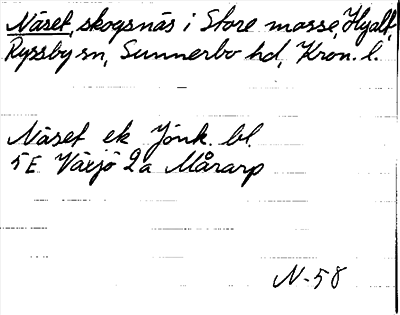 Näset, skogsnäs i Store mosse, Hjalt,
Ryssby sn, Sunnerbo hd, Kron. l.
Näset ek Jönk. bl.
5E Växjö 2a Mårarp
N-58